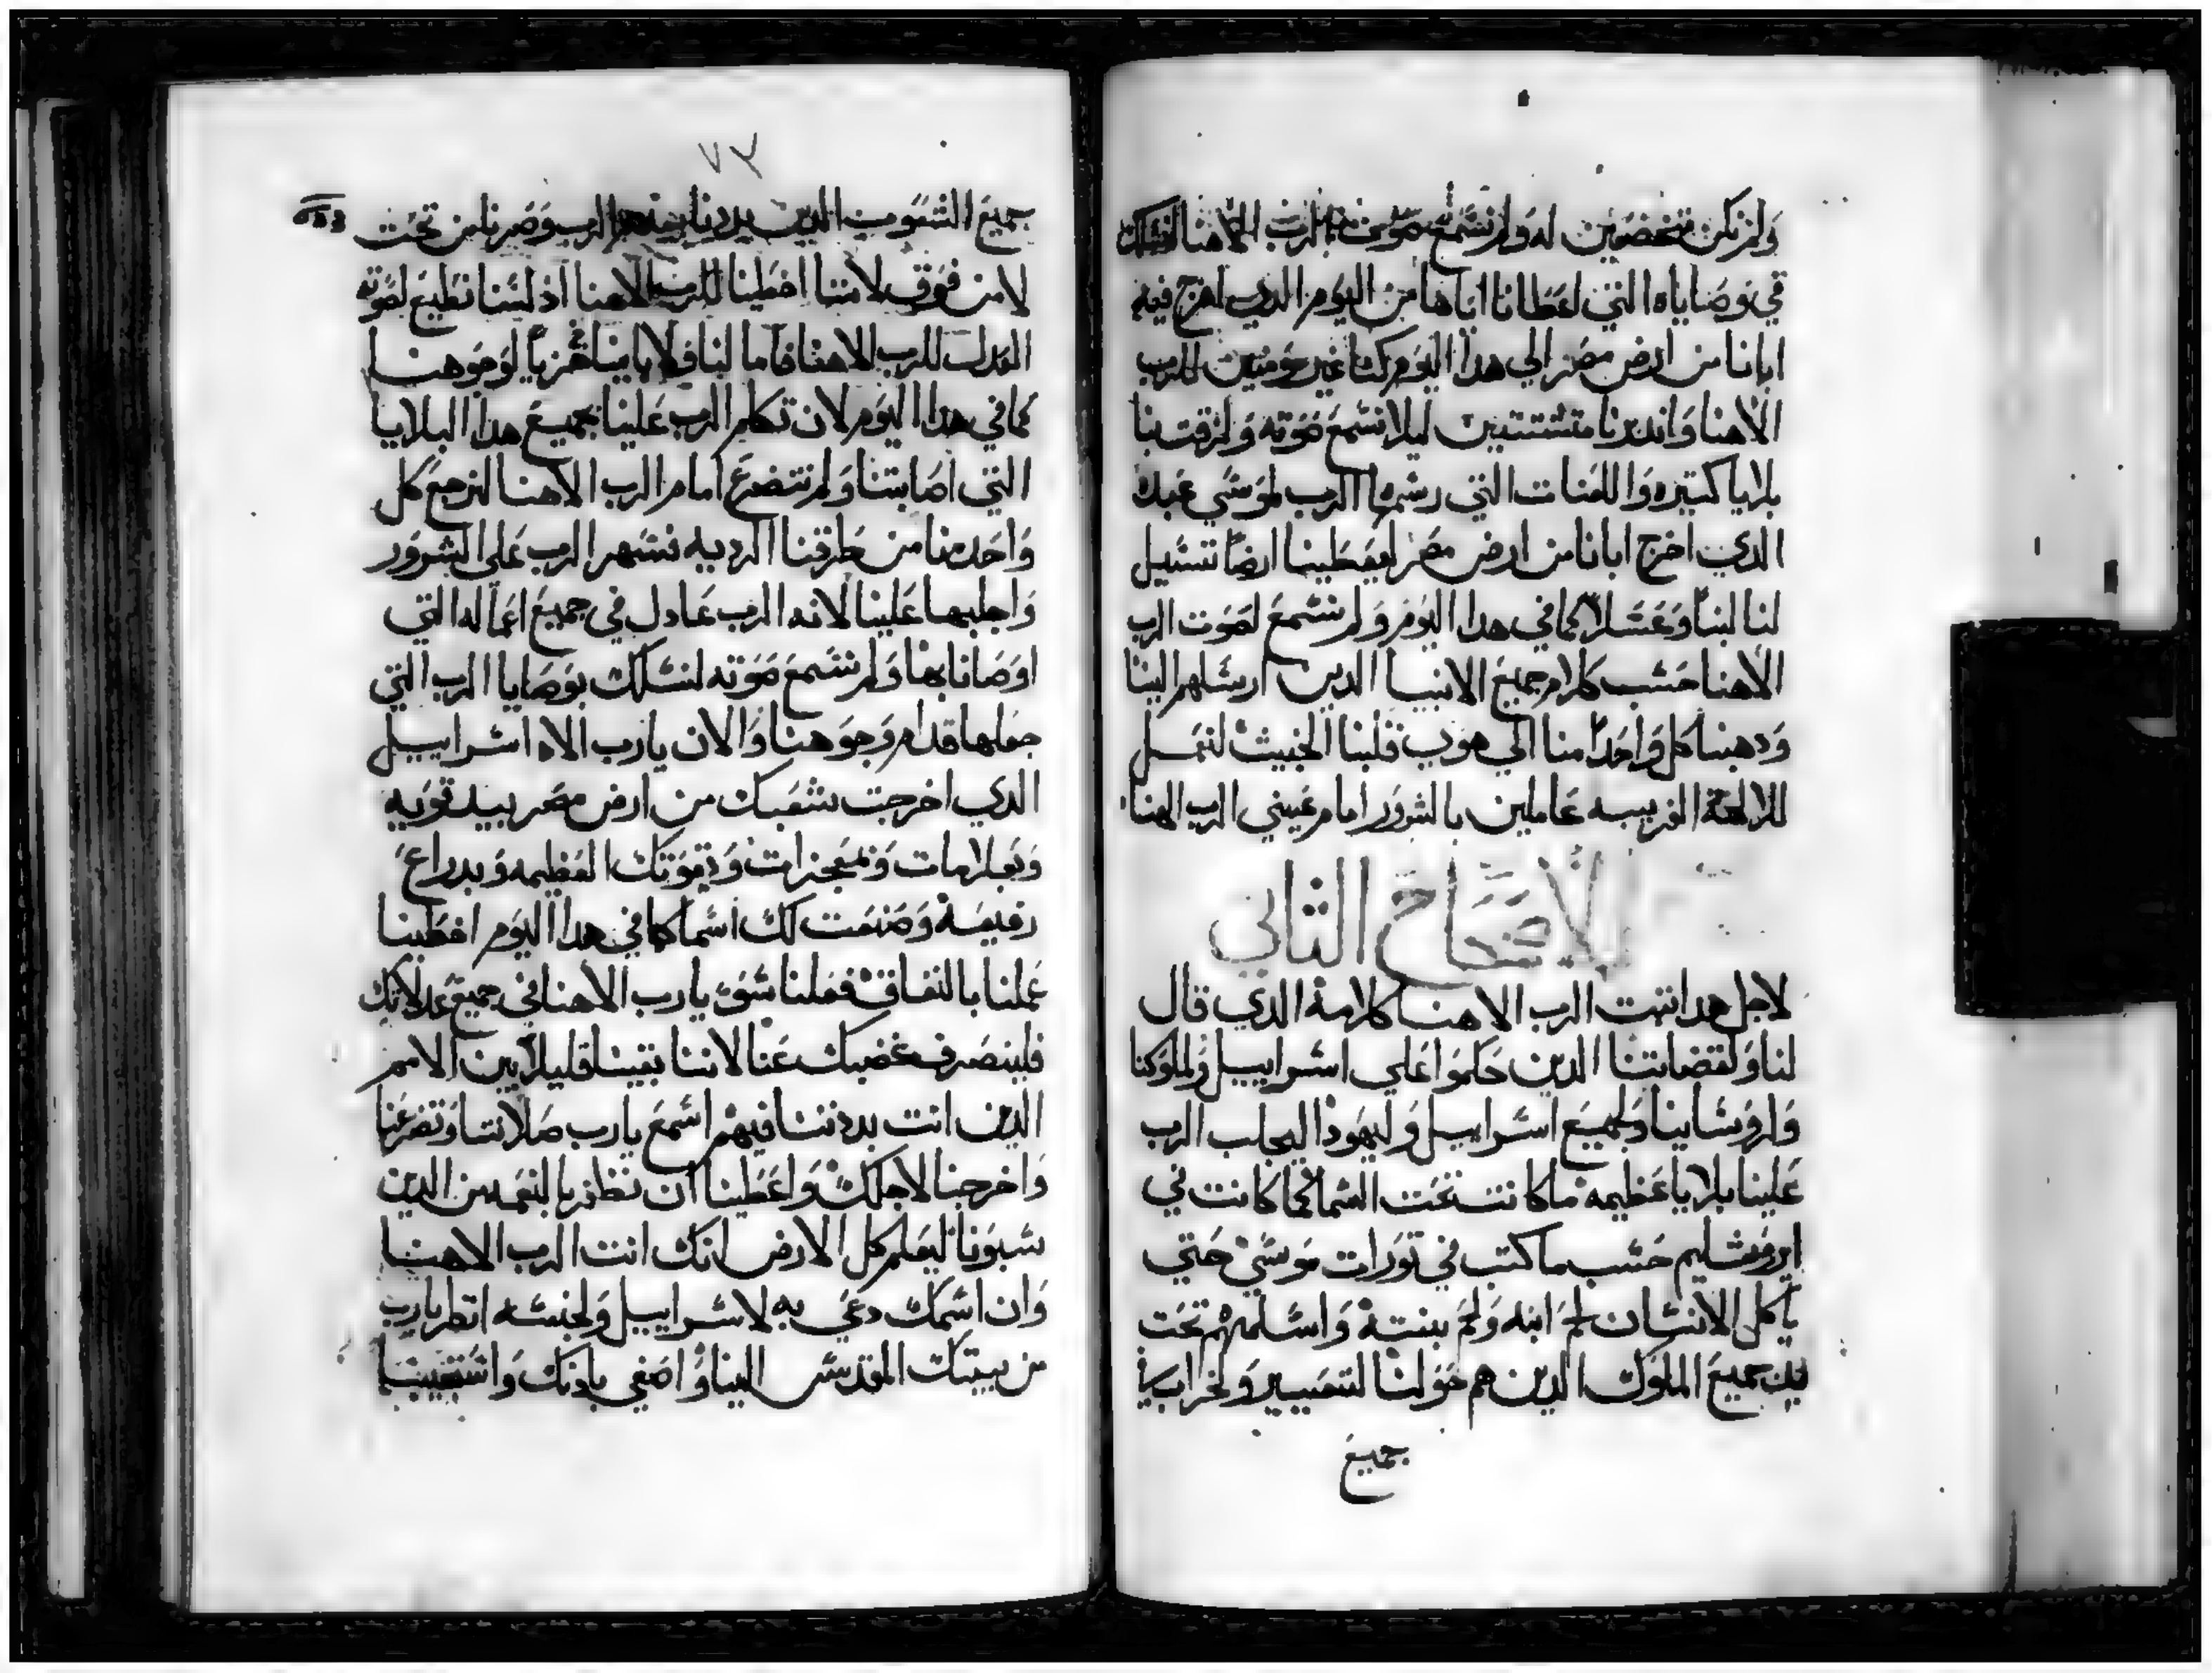 ولم نكن متخضعين له ولم نسمع صوت الرب الاهنا لنسلك
في وصاياه التي اعطانا اياها من اليوم الدي اخرج فيه
ابانا من ارض مصر الي هدا اليوم كنا غير مومنين للرب
الاهنا واندرنا متشتتين ليلا نسمع صوته ولزقت بنا
بلايا كتيره واللعنات التي رسمها الرب لموسي عبده
الدي اخرج ابانا من ارض مصر ليعطينا ارضا تسيل
لنا لبنا وعسلا كما في هدا اليوم ولم نسمع لصوت الرب
الاهنا حسب كلام جميع الانبيا الدين ارسلهم الينا
ودهبنا كل واحدا منا الي هوي قلبنا الخبيث لنعمل
للالهة الغريبه عاملين بالشرور امام عيني الرب الهنا
الاصحاح الثاني
لاجل هدا تبت الرب الاهنا كلامه الدي قال
لنا ولقضاتنا الدين حكموا علي اسراييل ولملوكنا
ولروساينا ولجميع اسراييل وليهودا ليجلب الرب
علينا بلايا عظيمه ما كانت تحت السما كما كانت في
ايروشليم حسب ما كتب في تورات موسي حتي
ياكل الانسان لحم ابنه ولحم بنته واسلمهم تحت
يد جميع الملوك الدين هم حولنا لتعيير ولخراب في
جميع
٧٣
جميع الشعوب الدين بددنا الرب وصرنا من تحت
لا من فوق لاننا اخطينا للرب الاهنا اد لسنا نطيع لصوته
العدل للرب الاهنا فاما لنا ولاباينا خزيا لوجوهنا
كما في هدا اليوم لان تكلم الرب علينا بجميع هدا البلايا
التي اصابتنا ولم نتضرع امام الرب الاهنا لنرجع كل
واحد منا من طرقنا الرديه فسهر الرب علي الشرور
واجلبها علينا لانه الرب عادل في جميع اعماله التي
اوصانا بها ولم نسمع صوته لنسلك بوصايا الرب التي
جعلها قدام وجوهنا والان يارب الاه اسراييل
الدي اخرجت شعبك من ارض مصر بيد قويه
وبعلامات وبمعجزات وبقوتك العظيمه وبدراع
رفيعه وصنعت لك اسما كما في هدا اليوم اخطينا
عملنا بالنفاق فعلنا سوء يارب الاهنا في جميع عدلاتك
فلينصرف غضبك عنا لاننا بقينا قليلا بين الامم
الدين انت بددتنا فيهم اسمع يارب صلاتنا وتضرعنا
واخرجنا لاجلك واعطينا ان نظفر بالنعمه من الدين
سبونا ليعلم كل الارض انك انت الرب الاهنا
وان اسمك دعي به لاسراييل ولجنسه انظر يارب
من بيتك المقدس الينا واصغي بادنك واستجيبنا